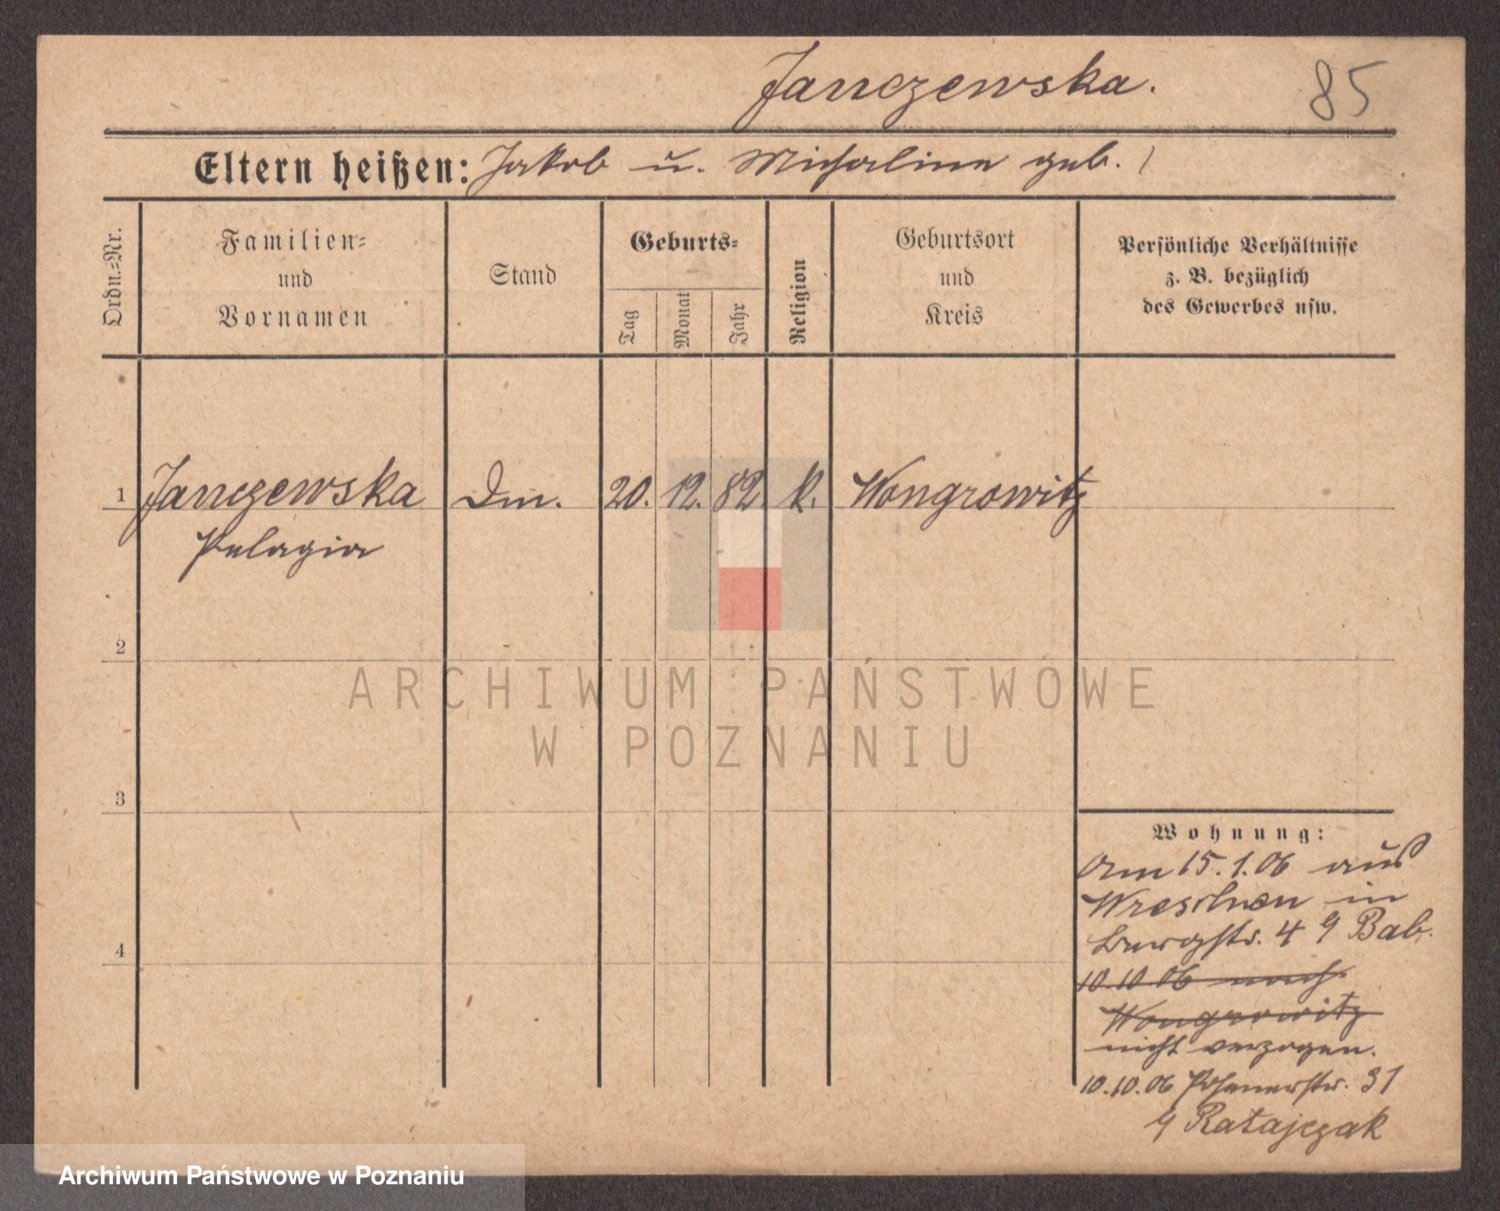 Janczewska.
85
Eltern heißen: Jakob u. Michalina geb. /
Ordn.=Nr.
Familien=
und
Vornamen
Stand
Geburts=
Tag
Monat
Jahr
Religion
Geburtsort
und
Kreis
Persönliche Verhältnisse
z. B. bezüglich
des Gewerbes usw.
1 Janczewska Dm. 20. 12. 82. k. Wongrowitz
Pelagia
2
3
4
Wohnung:
Am 15.1.06 aus
Wreschen in
Burgstr. 4 Bab.
10.10.06 nach
Wongrowitz
nicht verzogen.
10.10.06 Posenerstr. 31
Ratajczak
ARCHIWUM PAŃSTWOWE
W POZNANIU
Archiwum Państwowe w Poznaniu